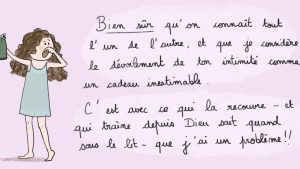 Bien sûr qu'on connaît tout
l'un de l'autre, et que je considère
le dévoilement de ton intimité comme
un cadeau inestimable
C'est avec ce qui la recouvre - et
qui traîne depuis Dieu sait quand
sous le lit - que j'ai un problème!!